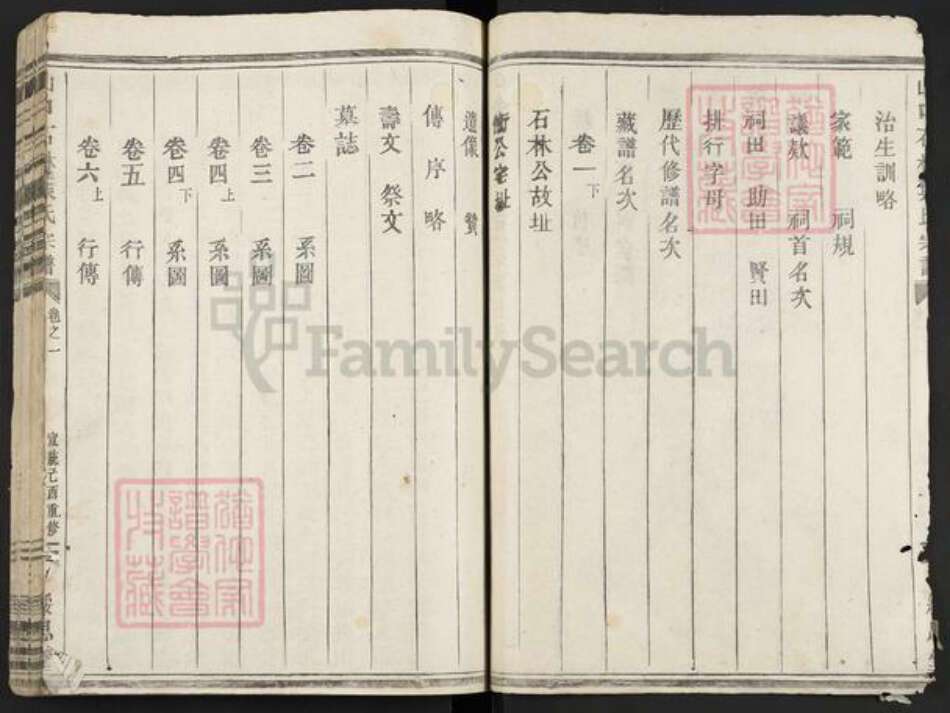 治生訓略
家範 祠規
議欵 祠首名次
祠田 助田 賢田
排行字母
歷代修譜名次
藏譜名次
卷一下
石林公故址
衝公宅址
遺像 贊
傳 序 略
壽文 祭文
墓誌
卷二 系圖
卷三 系圖
卷四上 系圖
卷四下 系圖
卷五 行傳
卷六上 行傳
卷之一
宣統己酉重修
FamilySearch
譜學會